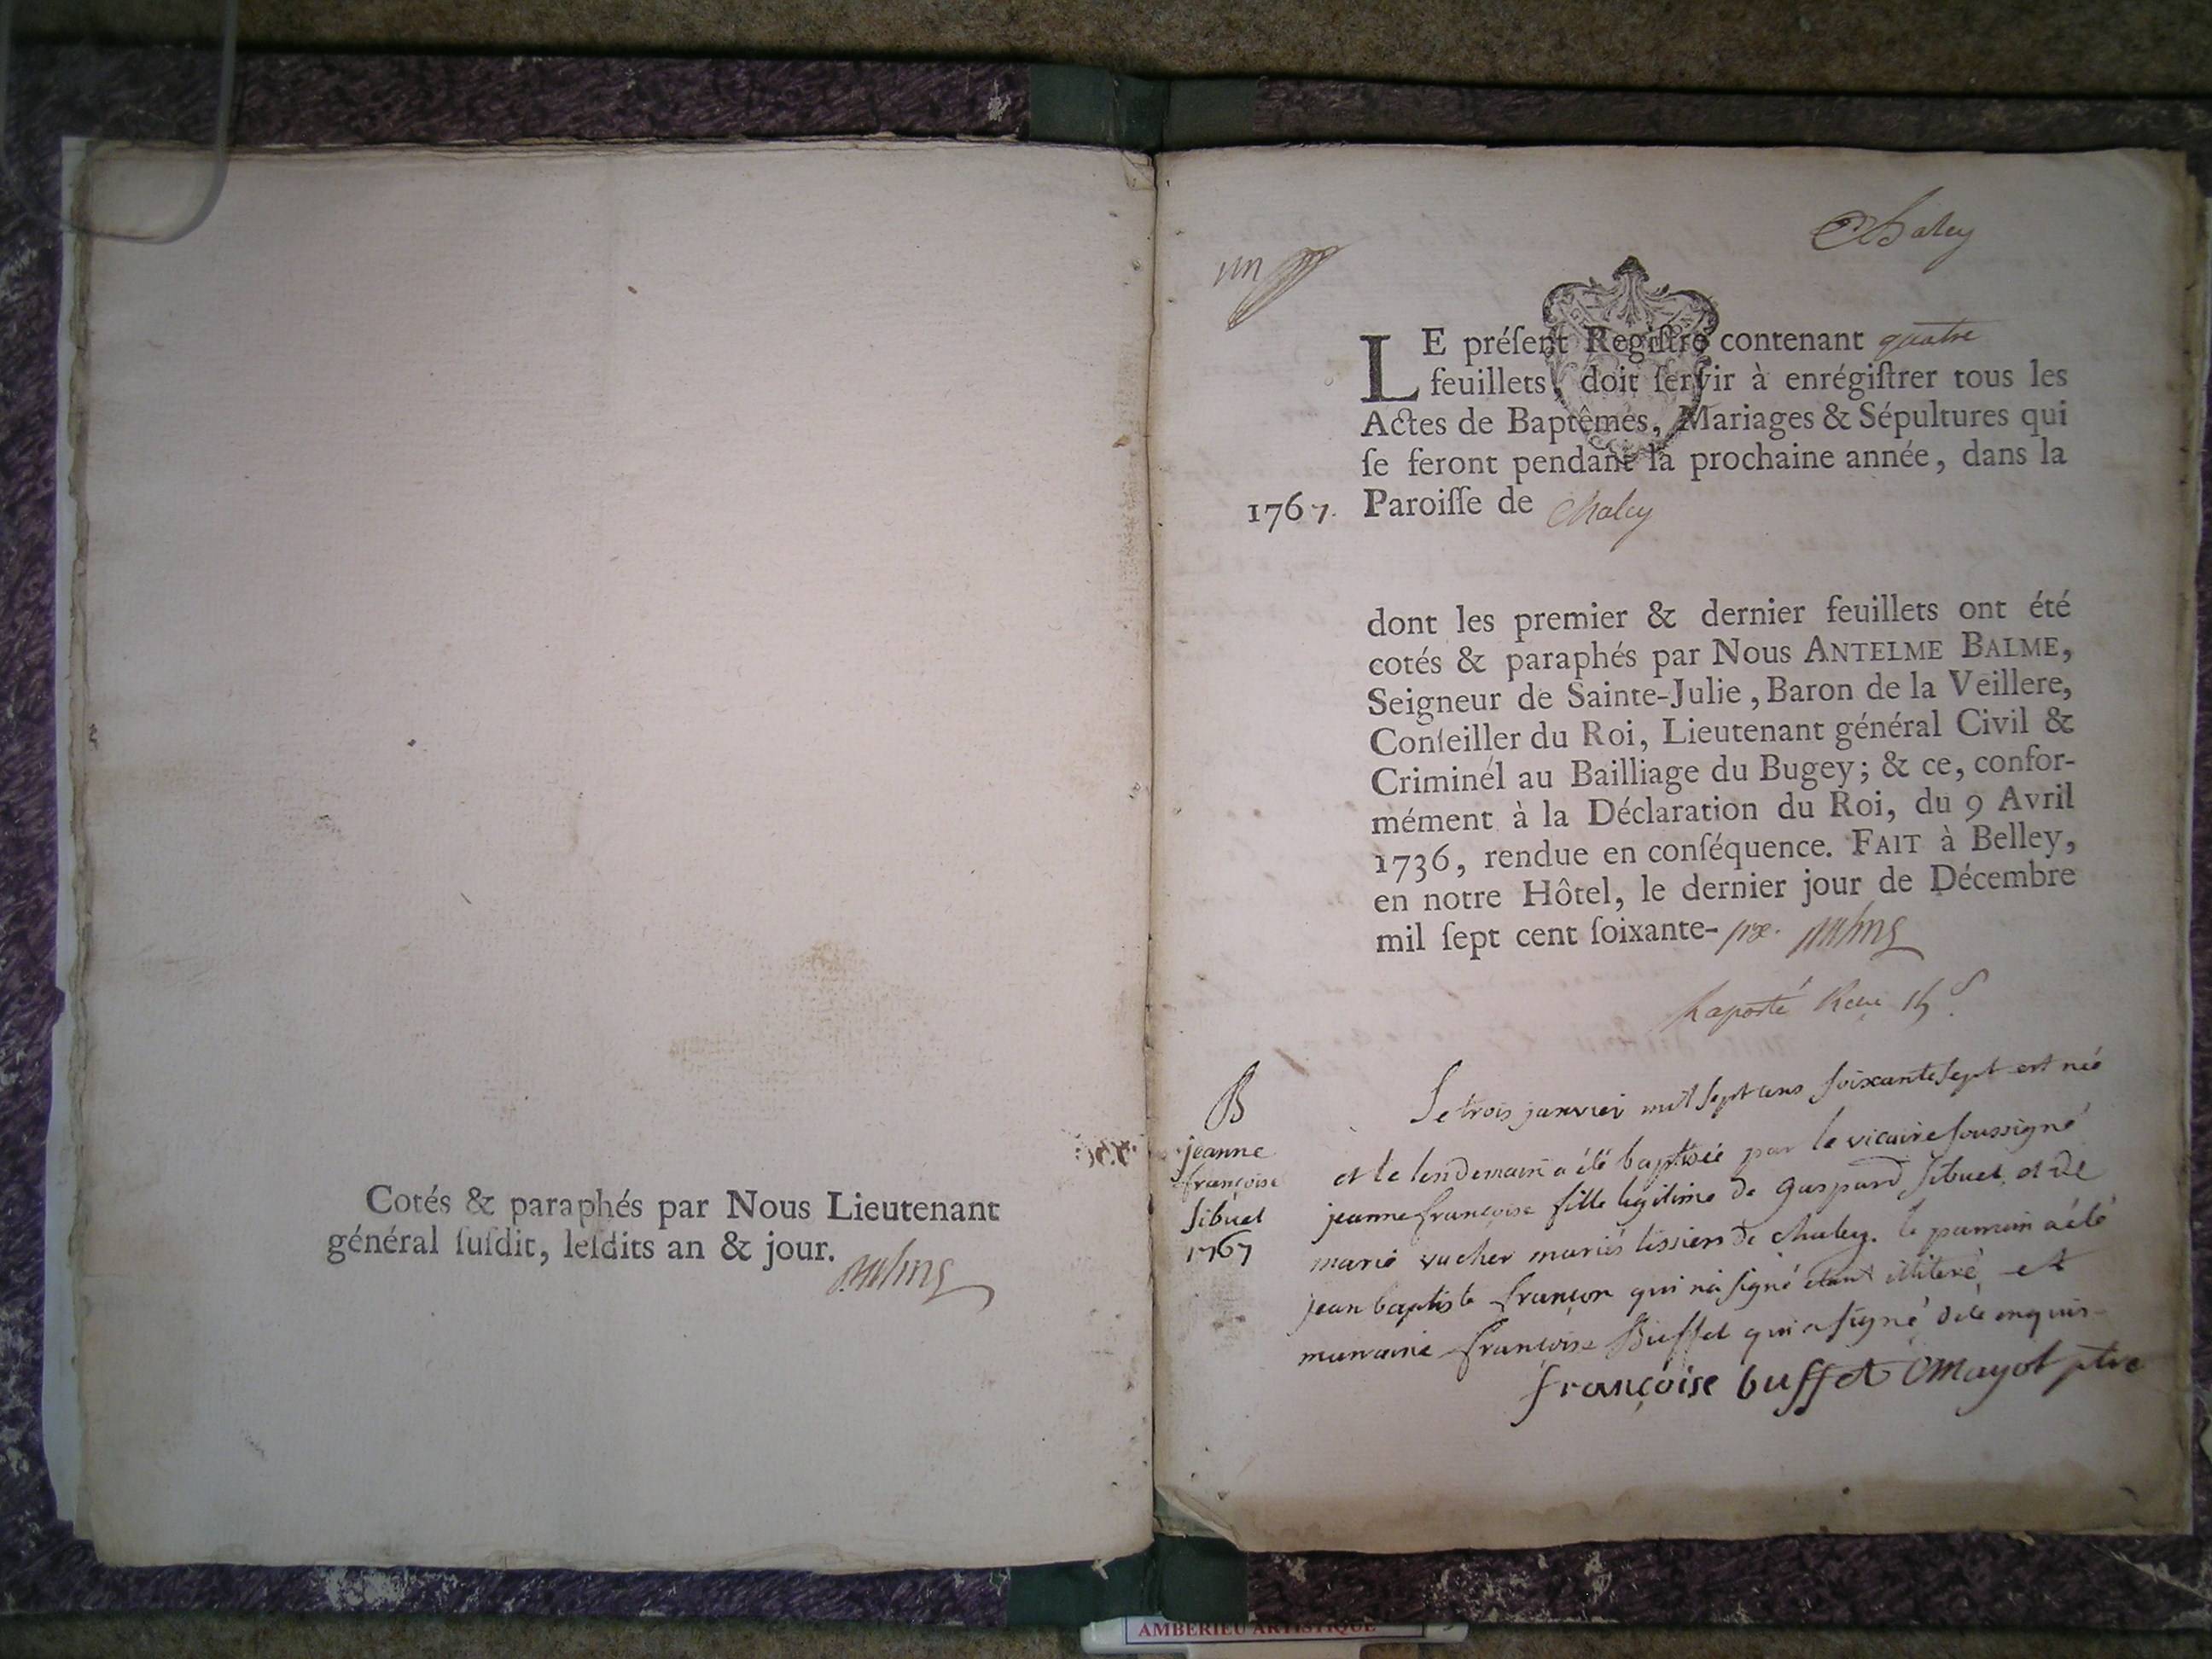 Cotés & paraphés par Nous Lieutenant
général ſuſdit, leſdits an & jour.
Chaley
un
LE préſent Regiſtre contenant quatre
feuillets, doit ſervir à enrégiſtrer tous les
Actes de Baptêmes, Mariages & Sépultures qui
ſe feront pendant la prochaine année, dans la
1767. Paroiſſe de Chaley
dont les premier & dernier feuillets ont été
cotés & paraphés par Nous ANTELME BALME,
Seigneur de Sainte-Julie, Baron de la Veillere,
Conſeiller du Roi, Lieutenant général Civil &
Criminél au Bailliage du Bugey; & ce, confor-
mément à la Déclaration du Roi, du 9 Avril
1736, rendue en conſéquence. FAIT à Belley,
en notre Hôtel, le dernier jour de Décembre
mil ſept cent ſoixante-six. Balme
Raporté
B
jeanne
françoise
sibuet
1767
Le trois janvier mil sept cens soixante sept est née
et le lendemain a été baptisée par le vicaire soussigné
jeanne françoise fille legitime de gaspard sibuet et de
marie vucher mariés tissiers de chaley. le parrain a été
jean baptiste françon qui n'a signé etant illiteré et
marraine françoise Buffet qui a signé de ce enquis
françoise buffet Mayot ptre
AMBERIEU ARTISTIQUE